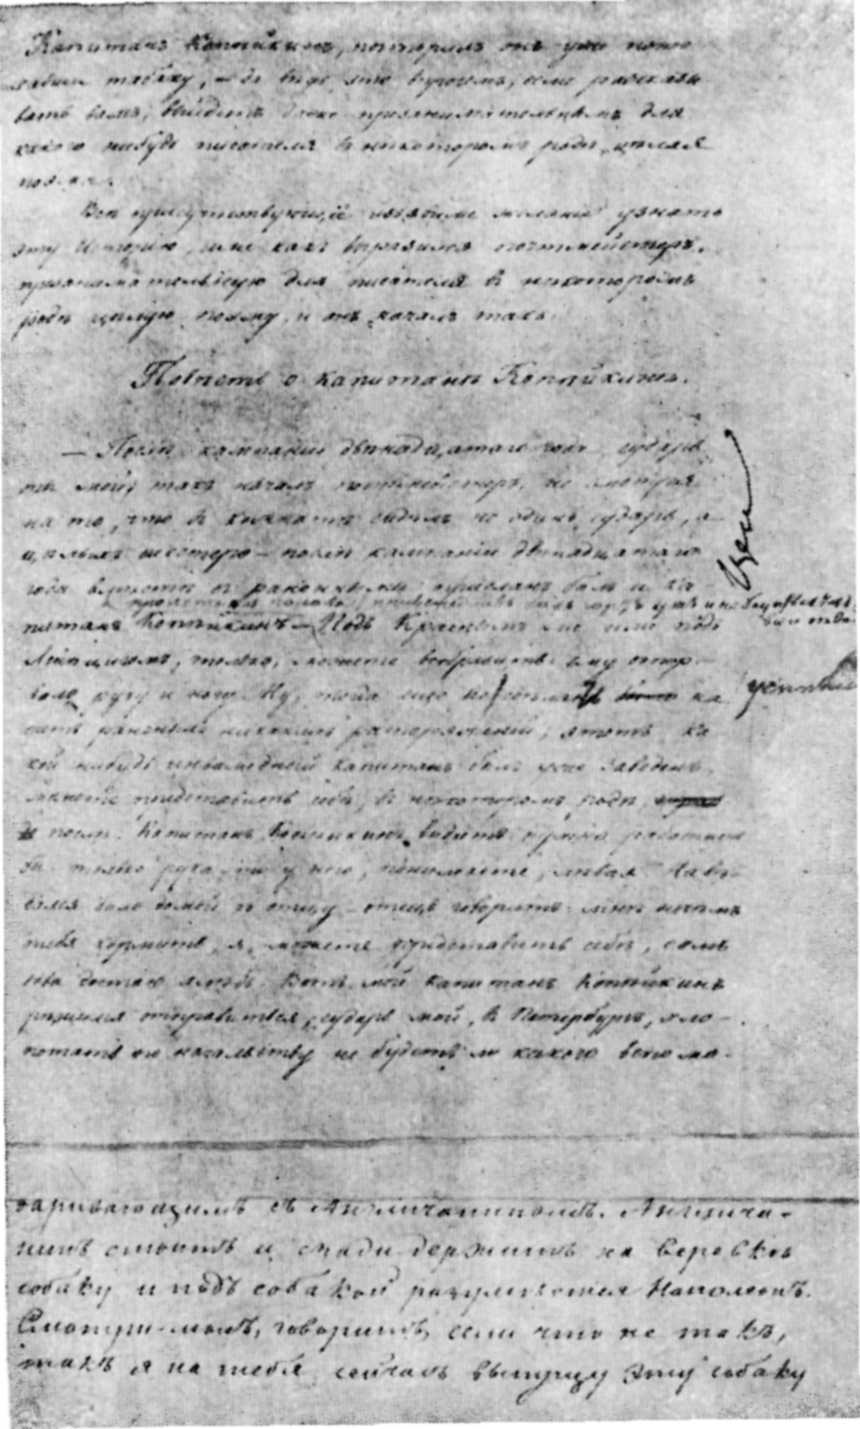 Капитанъ Копѣйкинъ, повторилъ онъ уже понюхавши
табаку, да вѣдь это впрочемъ, если разсказы
вать вамъ, выйдетъ презанимательнымъ для
какого нибудь писателя въ нѣкоторомъ родѣ, цѣлая
поэма.
Всѣ присутствующіе изъявили желаніе узнать
эту исторію, или какъ выразился почтмейстеръ,
презанимательную для писателя въ нѣкоторомъ
родѣ цѣлую поэму, и онъ началъ такъ.
Повѣсть о капитанѣ Копѣйкинѣ.
— Послѣ кампаніи двѣнадцатаго года, сударь
ты мой, такъ началъ почтмейстеръ, не смотря
на то, что въ комнатѣ сидѣлъ не одинъ сударь, а
цѣлыхъ шестеро — послѣ кампаніи двѣнадцатаго
года вмѣстѣ съ ранеными присланъ былъ и ка-
питанъ Копѣйкинъ — Подъ Краснымъ ли или подъ
Лейпцигомъ, только, можете вообразить ему отор-
вало руку и ногу. Ну, тогда еще не на
счетъ раненыхъ никакихъ распоряженій; этотъ ка
кой нибудь инвалидный капиталъ былъ уже заведенъ,
можете представить себѣ, въ нѣкоторомъ родѣ,
послѣ. Капитанъ Копѣйкинъ видитъ: нужно работать
бы, только рука-то у него, понимаете, лѣвая. Навѣ-
дался было домой къ отцу — отецъ говоритъ: мнѣ нечѣмъ
тебя кормить, я, можете представить себѣ, самъ
едва достаю хлѣбъ. Вотъ мой капитанъ Копѣйкинъ
рѣшился отправиться, сударь мой, въ Петербургъ, хло-
потать по начальству не будетъ ли какого вспома-
варивающимъ съ Англичаниномъ. Англича-
нинъ стоитъ и сзади держитъ на веревкѣ
собаку и подъ собакой разумѣется Наполеонъ.
Смотри-молъ, говоритъ, если что не такъ,
такъ я на тебя сейчасъ выпущу эту собаку